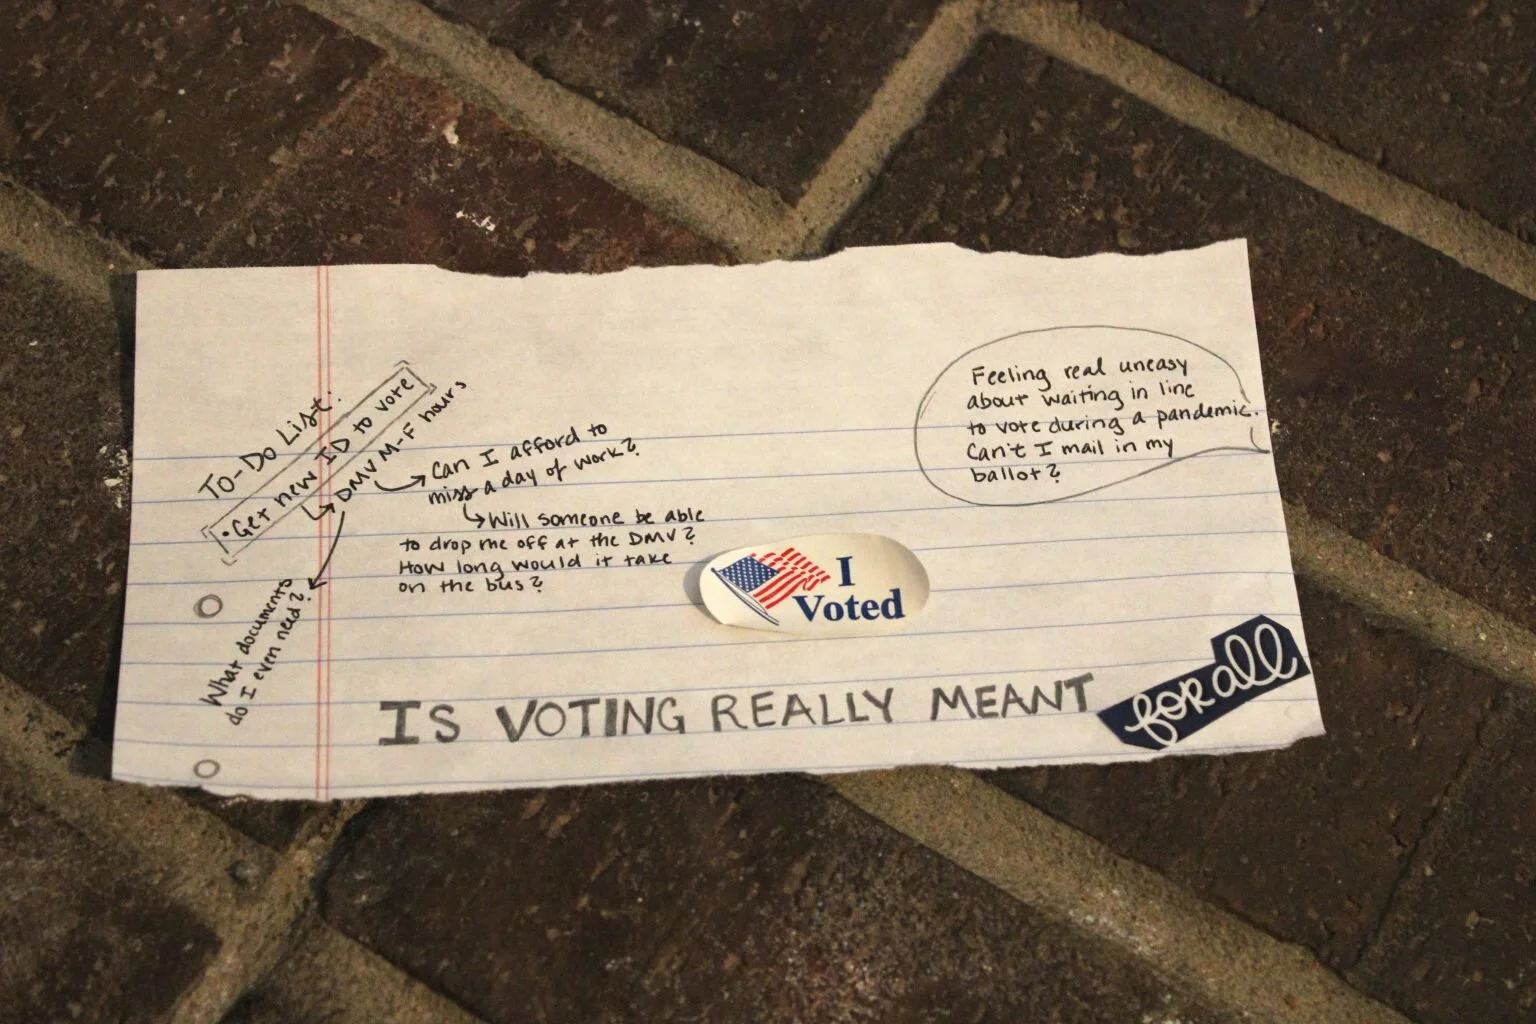 To-Do List:
• Get new ID to vote
DMV M-F hours
Can I afford to
miss a day of work?
Will someone be able
to drop me off at the DMV?
How long would it take
on the bus?
What documents
do I even need?
Feeling real uneasy
about waiting in line
to vote during a pandemic.
Can't I mail in my
ballot?
I
Voted
IS VOTING REALLY MEANT for all